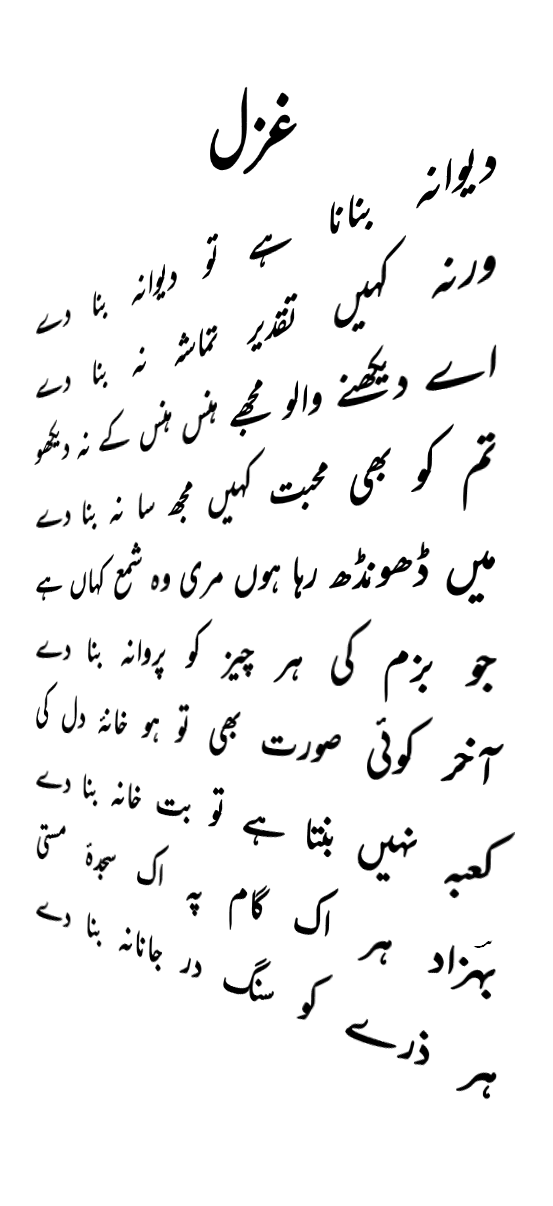 غزل
دیوانہ بنانا ہے تو دیوانہ بنا دے
ورنہ کہیں تقدیر تماشہ نہ بنا دے
اے دیکھنے والو مجھے ہنس ہنس کے نہ دیکھو
تم کو بھی محبت کہیں مجھ سا نہ بنا دے
میں ڈھونڈھ رہا ہوں مری وہ شمع کہاں ہے
جو بزم کی ہر چیز کو پروانہ بنا دے
آخر کوئی صورت بھی تو ہو خانۂ دل کی
کعبہ نہیں بنتا ہے تو بت خانہ بنا دے
بہزادؔ ہر اک گام پہ اک سجدۂ مستی
ہر ذرے کو سنگ در جانانہ بنا دے